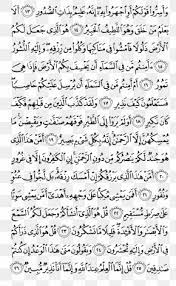 وَأَسِرُّوا۟ قَوْلَكُمْ أَوِ ٱجْهَرُوا۟ بِهِۦٓ إِنَّهُۥ عَلِيمٌۢ بِذَاتِ ٱلصُّدُورِ ١٣ أَلَا
يَعْلَمُ مَنْ خَلَقَ وَهُوَ ٱللَّطِيفُ ٱلْخَبِيرُ ١٤ هُوَ ٱلَّذِى جَعَلَ لَكُمُ
ٱلْأَرْضَ ذَلُولًا فَٱمْشُوا۟ فِى مَنَاكِبِهَا وَكُلُوا۟ مِن رِّزْقِهِۦ وَإِلَيْهِ ٱلنُّشُورُ
١٥ ءَأَمِنتُم مَّن فِى ٱلسَّمَآءِ أَن يَخْسِفَ بِكُمُ ٱلْأَرْضَ فَإِذَا هِىَ
تَمُورُ ١٦ أَمْ أَمِنتُم مَّن فِى ٱلسَّمَآءِ أَن يُرْسِلَ عَلَيْكُمْ حَاصِبًا
فَسَتَعْلَمُونَ كَيْفَ نَذِيرِ ١٧ وَلَقَدْ كَذَّبَ ٱلَّذِينَ مِن قَبْلِهِمْ فَكَيْفَ
كَانَ نَكِيرِ ١٨ أَوَلَمْ يَرَوْا۟ إِلَى ٱلطَّيْرِ فَوْقَهُمْ صَٰٓفَّٰتٍ وَيَقْبِضْنَ مَا
يُمْسِكُهُنَّ إِلَّا ٱلرَّحْمَٰنُ إِنَّهُۥ بِكُلِّ شَىْءٍۭ بَصِيرٌ ١٩ أَمَّنْ
هَٰذَا ٱلَّذِى هُوَ جُندٌ لَّكُمْ يَنصُرُكُم مِّن دُونِ ٱلرَّحْمَٰنِ إِنِ ٱلْكَٰفِرُونَ إِلَّا فِى غُرُورٍ
٢٠ أَمَّنْ هَٰذَا ٱلَّذِى يَرْزُقُكُمْ إِنْ أَمْسَكَ رِزْقَهُۥ بَل لَّجُّوا۟ فِى عُتُوٍّ وَنُفُورٍ
٢١ أَفَمَن يَمْشِى مُكِبًّا عَلَىٰ وَجْهِهِۦٓ أَهْدَىٰٓ أَمَّن يَمْشِى سَوِيًّا
عَلَىٰ صِرَٰطٍ مُّسْتَقِيمٍ ٢٢ قُلْ هُوَ ٱلَّذِىٓ أَنشَأَكُمْ وَجَعَلَ لَكُمُ ٱلسَّمْعَ
وَٱلْأَبْصَٰرَ وَٱلْأَفْـِٔدَةَ قَلِيلًا مَّا تَشْكُرُونَ ٢٣ قُلْ هُوَ ٱلَّذِى ذَرَأَكُمْ
فِى ٱلْأَرْضِ وَإِلَيْهِ تُحْشَرُونَ ٢٤ وَيَقُولُونَ مَتَىٰ هَٰذَا ٱلْوَعْدُ إِن كُنتُمْ
صَٰدِقِينَ ٢٥ قُلْ إِنَّمَا ٱلْعِلْمُ عِندَ ٱللَّهِ وَإِنَّمَآ أَنَا۠ نَذِيرٌ مُّبِينٌ ٢٦